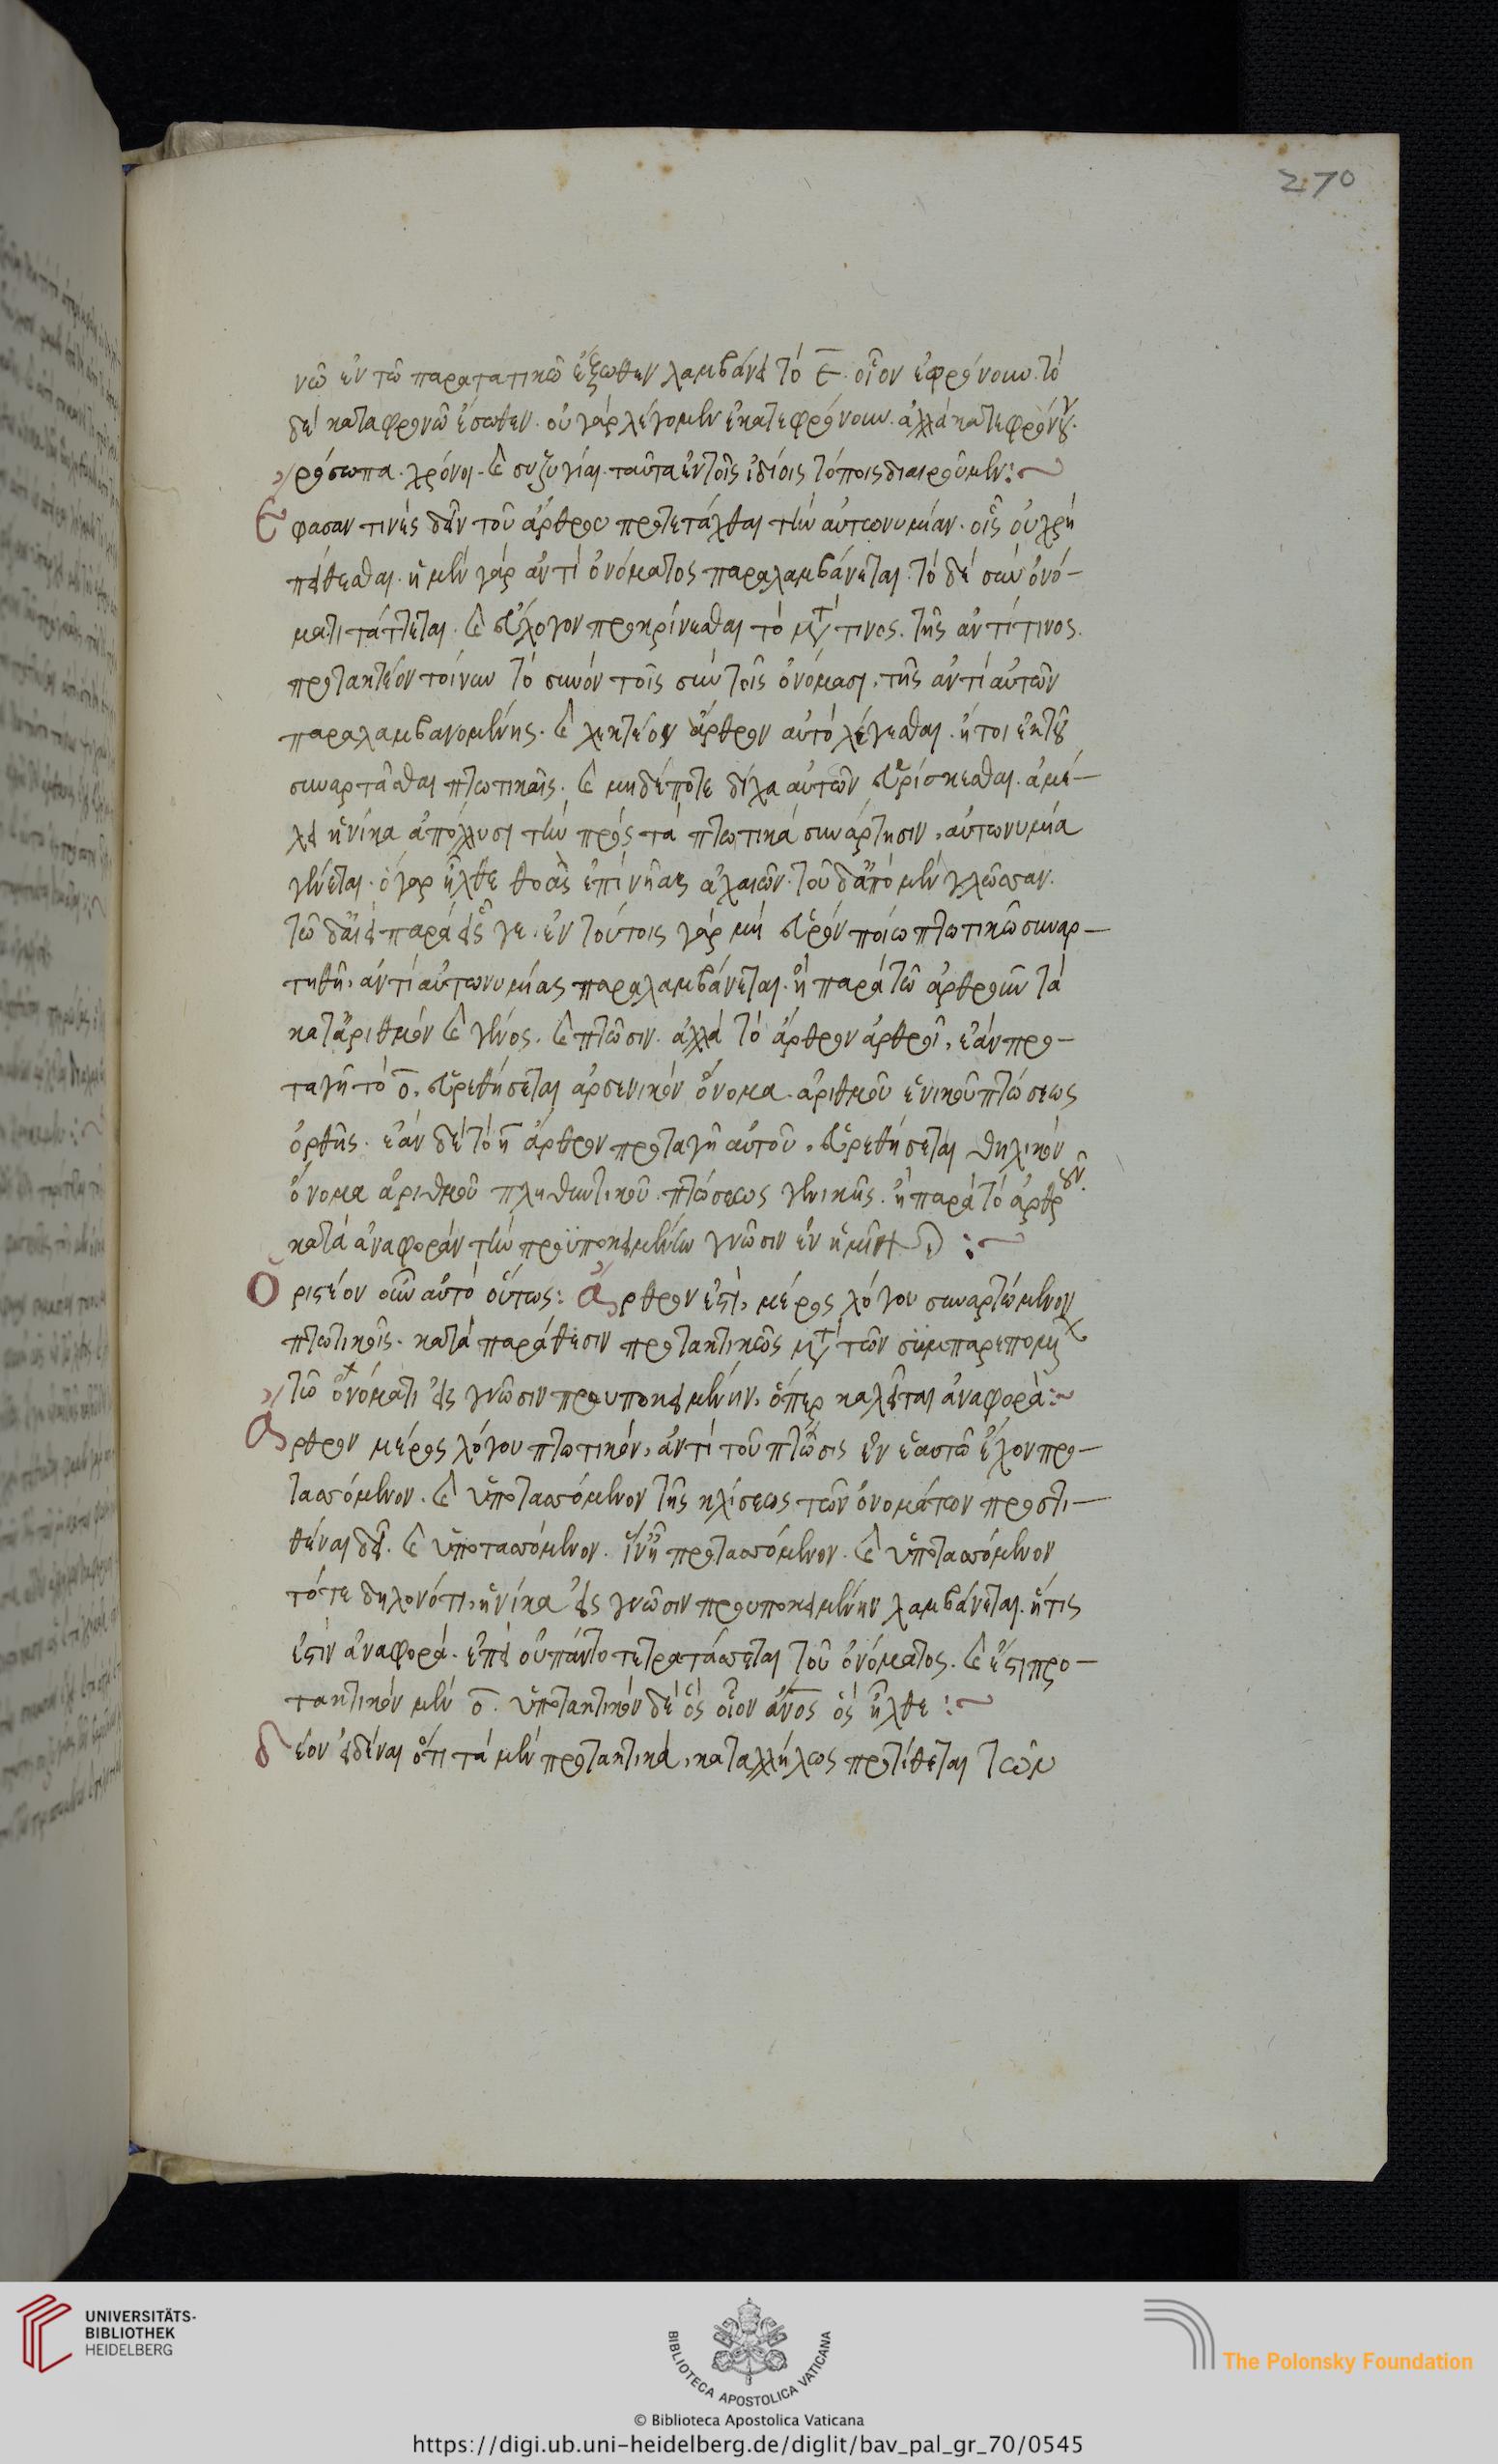 270
νῶ ἐν τῶ παρατατικῶ ἔξωθεν λαμβάνει τὸ ε̅. οἷον ἐφρόνουν. τὸ
δὲ καταφρονῶ ἔσωθεν. οὐ γὰρ λέγομεν ἐκατεφρόνουν. ἀλλὰ κατεφρόνουν.
ρόσωπα. χρόνοι. καὶ συζυγίαι. ταῦτα ἐν τοῖς ἰδίοις τόποις διαιροῦμεν:~
Ἔφασαν τινὲς δεῖν τοῦ ἄρθρου προτετάχθαι τὴν αὐτωνυμίαν. οἷς οὐ χρὴ
πείθεσθαι. ἡ μὲν γὰρ ἀντὶ ὀνόματος παραλαμβάνεται. τὸ δὲ σὺν ὀνό-
ματι τάττεται. καὶ εὔλογον προκρίνεσθαι τὸ μετά τινος. τῆς ἀντί τινος.
προτακτέον τοίνυν τὸ συνὸν τοῖς σὺν τοῖς ὀνόμασι, τῆς ἀντὶ αὐτῶν
παραλαμβανομένης. καὶ λεκτέον ἄρθρον αὐτὸ λέγεσθαι. ἤτοι ἐκ τοῦ
συναρτᾶσθαι πτωτικοῖς. καὶ μηδέποτε δίχα αὐτῶν εὑρίσκεσθαι. ἀμέ-
λει ἡνίκα ἀπόλλυσι τὴν πρὸς τὰ πτωτικὰ συνάρτησιν, αὐτωνυμία
γίνεται. ὁ γὰρ ἦλθε θοὰς ἐπὶ νῆας ἀχαιῶν. τοῦ δ' ἀπὸ μὲν γλῶσσαν.
τῶ δ' ἄϊει παρὰ εἷς γε. ἐν τούτοις γὰρ μὴ εὑρὸν ποίω πτωτικῶ συναρ-
τηθῆ, ἀντὶ αὐτωνυμίας παραλαμβάνεται. ἢ παρὰ τῶ ἀρθροῦν τὰ
κατ' ἀριθμὸν καὶ γένος. καὶ πτῶσιν. ἀλλὰ τὸ ἄρθρον ἀρθροῖ, ἐὰν προ-
ταγῆ τὸ ο̅. εὑρεθήσεται ἀρσενικὸν ὄνομα. ἀριθμοῦ ἑνικοῦ πτώσεως
ὀρθῆς. ἐὰν δὲ τὸ η̅ ἄρθρον προταγῆ αὐτοῦ, εὑρεθήσεται θηλικὸν
ὄνομα ἀριθμοῦ πληθυντικοῦ. πτώσεως γενικῆς. ἢ παρὰ τὸ ἀρθροῦν
κατὰ ἀναφορὰν τὴν προϋποκειμένην γνῶσιν ἐν ἡμῖν :~
Ὁριστέον οὖν αὐτὸ οὕτως: ἄρθρον ἐστὶ, μέρος λόγου συναρτώμενον
πτωτικοῖς. κατὰ παράθεσιν προτακτικῶς μετὰ τῶν συμπαρεπομένων
τῶ ὀνόματι εἰς γνῶσιν προυποκειμένην, ὅπερ καλεῖται ἀναφορὰ:~
Ἄρθρον μέρος λόγου πτωτικὸν, ἀντὶ τοῦ πτῶσις ἐν ἑαυτῶ ἔχον προ-
τασσόμενον. καὶ ὑποτασσόμενον τῆς κλίσεως τῶν ὀνομάτων προστι-
θέναι δεῖ. καὶ ὑποτασσόμενον. ἵν' ἦ προτασσόμενον. καὶ ὑποτασσόμενον
τότε δηλονότι, ἡνίκα εἰς γνῶσιν προυποκειμένην λαμβάνεται. ἥτις
ἐστὶν ἀναφορά. ἐπεὶ οὐ πάντοτε προτάσσεται τοῦ ὀνόματος. καὶ ἔστι προ-
τακτικὸν μὲν ὁ̅. ὑποτακτικὸν δὲ ὅς οἷον ἄνος ὃς ἦλθε :~
δέον εἰδέναι ὅτι τὰ μὲν προτακτικὰ, καταλλήλως προτίθεται τῶν
UNIVERSITÄTS-
BIBLIOTHEK
HEIDELBERG
BIBLIOTECA APOSTOLICA VATICANA
The Polonsky Foundation
© Biblioteca Apostolica Vaticana
https://digi.ub.uni-heidelberg.de/diglit/bav_pal_gr_70/0545